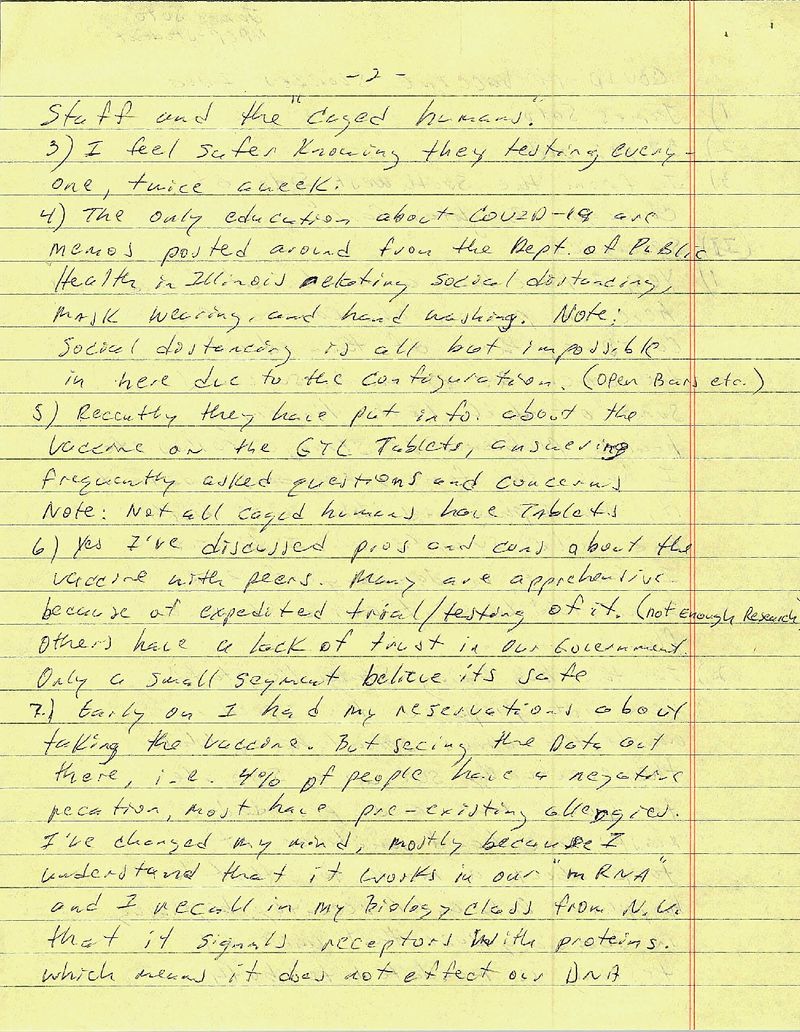 - 2 -
Staff and the "caged humans".
3) I feel safer knowing they testing every-
one, twice aweek.
4) The only education about COVID-19 are
memos posted around from the Dept. of Public
Health in Illinois relating social distancing,
mask wearing, and hand washing. Note:
social distancing is all but impossible
in here due to the configuration. (open Bars etc.)
5) Recently they have put info. about the
vaccine on the GTL Tablets, answering
frequently asked questions and concerns
Note: Not all caged humans have Tablets
6) Yes I've discussed pros and cons about the
vaccine with peers. Many are apprehensive
because of expedited trial/testing of it. (not Enough Research
others have a lack of trust in our Government.
Only a small segment believe its safe
7.) Early on I had my reservations about
taking the vaccine. But seeing the Data out
there, i.e. 4% of people have a negative
recation, most have pre-existing allergies.
I've changed my mind, mostly because I
understand that it works in our "mRNA"
and I recall in my biology class from N.U.
that it signals receptors with proteins.
which means it does not effect our DNA